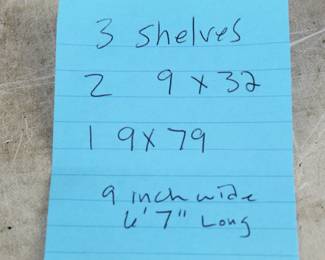 3 shelves
2 9 x 32
1 9 x 79
9 inch wide
6' 7" Long